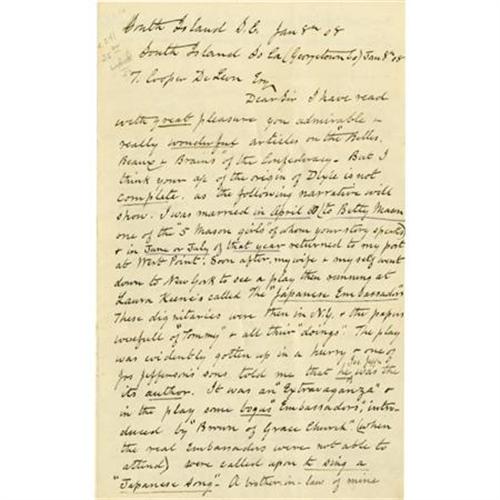 South Island S.C. Jan 8th 08
South Island So Ca (Georgetown Co) Jan 8th 08
T. Cooper De Leon Esq
Dear Sir I have read
with great pleasure you admirable &
really wonderful articles on the "Belles,
Beaux & Brains of the Confederacy". But I
think your a/c of the origin of Dixie is not
complete. as the following narrative will
show. I was married in April to Betty Mason
one of the "5 Mason girls" of whom your story speaks
& in June or July of that year returned to my post
at West Point. Soon after, my wife & myself went
down to New York to see a play then running at
Laura Keene's called The "Japanese Embassadors"
These dignitaries were then in N.Y. & the papers
were full of "Tommy" & all their "doings". The play
was evidently gotten up in a hurry & one of
Jos Jefferson's sons told me that he was the
its author. It was an "Extravaganza" &
in the play some bogus "Embassadors", intro-
duced by "Brown of Grace Church" (when
the real Embassadors were not able to
attend) were called upon to sing a
"Japanese Song". A brother-in-law of mine